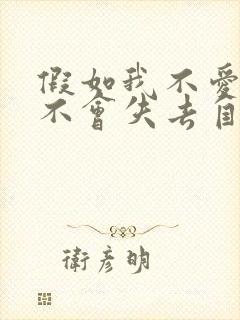 假如我不愛
不會失去自
衛彥明